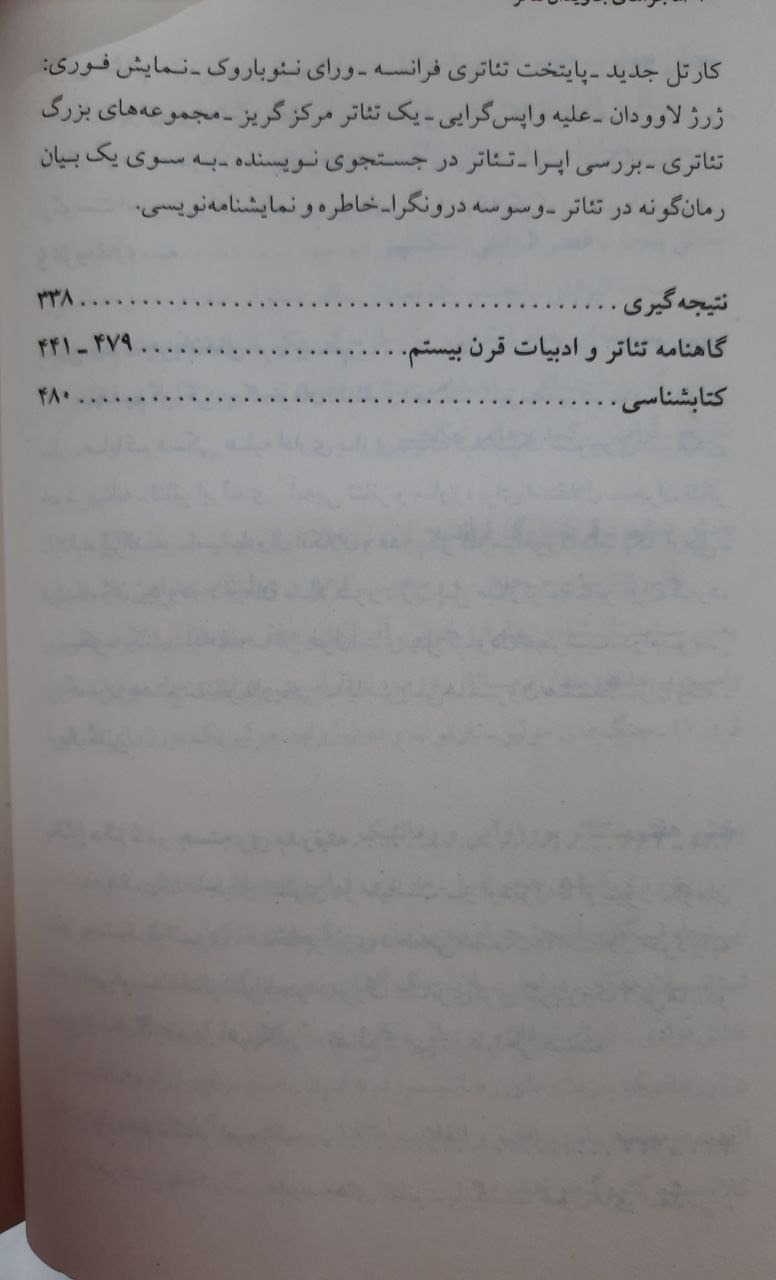 کارتل جدید ـ پایتخت تئاتری فرانسه ـ ورای نئوباروک ـ نمایش فوری:
ژرژ لاوودان ـ علیه واپس‌گرایی ـ یک تئاتر مرکز گریز ـ مجموعه‌های بزرگ
تئاتری ـ بررسی اپرا ـ تئاتر در جستجوی نویسنده ـ به سوی یک بیان
رمان‌گونه در تئاتر ـ وسوسه درونگرا ـ خاطره و نمایشنامه‌نویسی.
نتیجه‌گیری ........................................ ۳۳۸
گاهنامه تئاتر و ادبیات قرن بیستم.................... ۴۷۹ ـ ۴۴۱
کتابشناسی ........................................ ۴۸۰